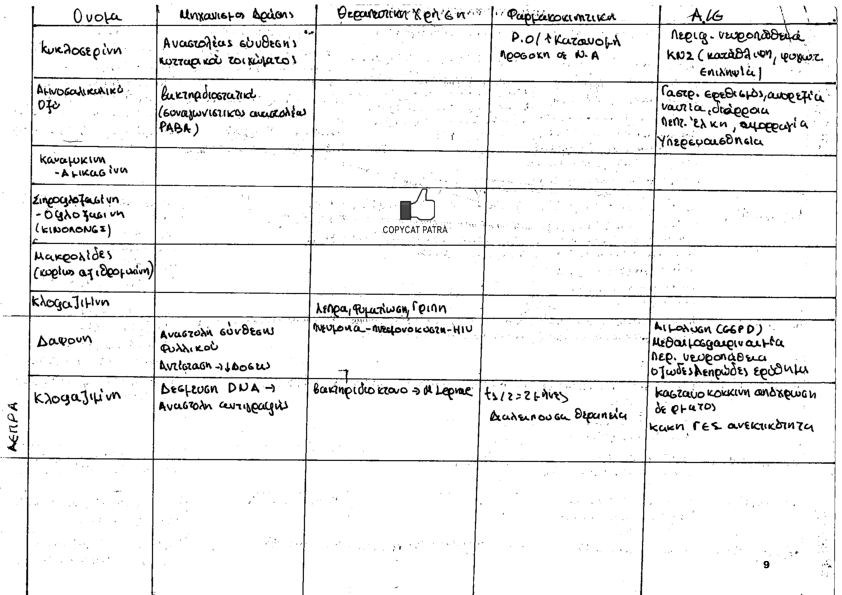 Όνομα
Μηχανισμος Δράσης
Θεραπευτική Χρήση
Φαρμακοκινητικη
Α/Ε
Κυκλοσερίνη
Αναστολέας σύνθεσης
κυτταρικού τοιχώματος
P.O/↑κατανομή
προσοχη σε Ν.Α
Περιφ. νευροπάθεια
ΚΝΣ (κατάθλιψη, ψυχωτ.
επιληψία)
Αμινοσαλικυλικό
Οξύ
βακτηριοστατικό
(συναγωνιστικός αναστολέας
PABA)
Γαστρ. ερεθισμός, ανορεξία
ναυτία, διάρροια
Πεπτ. Έλκη, αιμορραγία
Υπερευαισθησία
Καναμυκινη
- Αμικασίνη
Σιπροφλοξασίνη
- Οφλοξασίνη
(ΚΙΝΟΛΟΝΕΣ)
COPYCAT PATRA
Μακρολίδες
(κυρίως αζιθρομυκίνη)
Κλοφαζιμίνη
Λέπρα, Φυματίωση, Γρίπη
Δαψονη
Αναστολή σύνθεσης
Φυλλικού
Αντίσταση → ↓Δόσεις
πνευμονία-πνευμονοκυστη-HIV
Αιμόλυση (G6PD)
Μεθαιμοσφαιριναιμία
Περ. νευροπάθεια
οζώδες λεπρώδες ερύθημα
ΛΕΠΡΑ
Κλοφαζιμίνη
Δεσμευση DNA →
Αναστολη αντιγραφής
Βακτηριδιοκτονο → M Leprae
t1/2 = 2 μήνες
Διαλειπουσα θεραπεία
Καστανοκόκκινη απόχρωση
δέρματος
κακη ΓΕΣ ανεκτικότητα
9